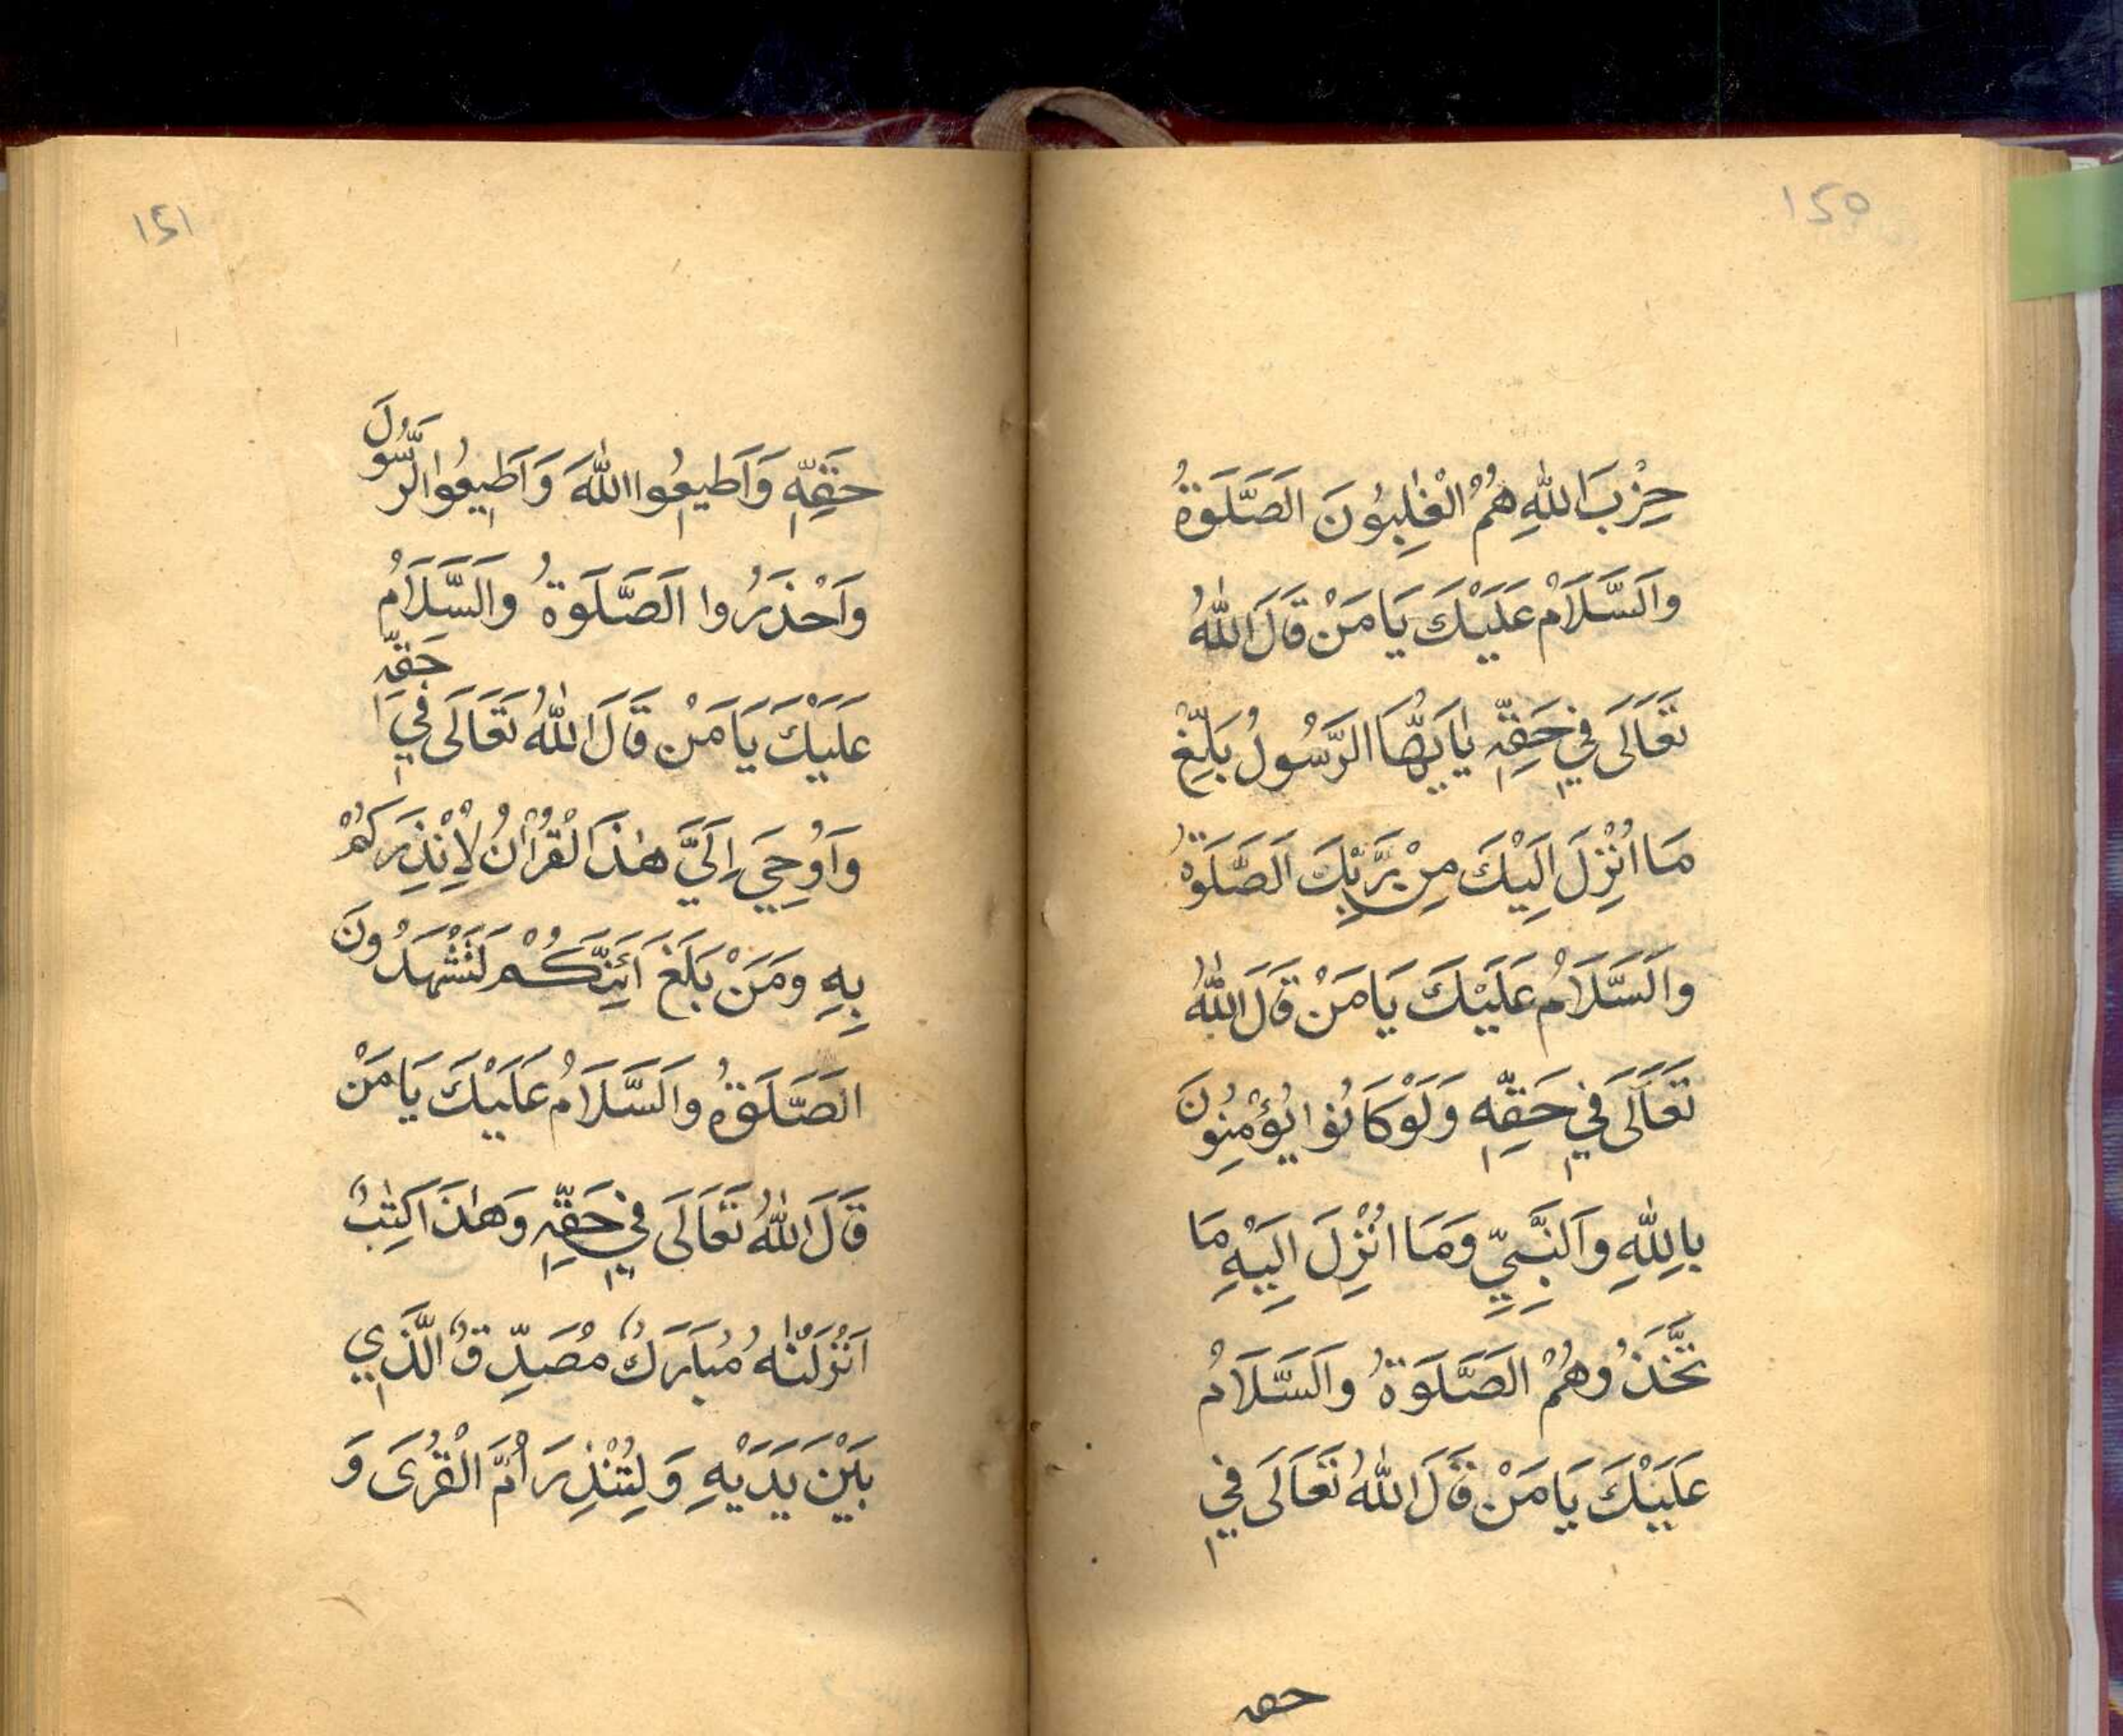 150
حِزْبَ اللّٰهِ هُمُ الْغٰلِبُونَ اَلصَّلَوةُ
وَالسَّلَامُ عَلَيْكَ يَا مَنْ قَالَ اللّٰهُ
تَعَالَى فِي حَقِّهِ يٰاَيُّهَا الرَّسُولُ بَلِّغْ
مَا اُنْزِلَ اِلَيْكَ مِنْ رَبِّكَ اَلصَّلَوةُ
وَالسَّلَامُ عَلَيْكَ يَا مَنْ قَالَ اللّٰهُ
تَعَالَى فِي حَقِّهِ وَلَوْ كَانُوا يُؤْمِنُونَ
بِاللّٰهِ وَالنَّبِيِّ وَمَا اُنْزِلَ اِلَيْهِ مَا
تَّخَذُوهُمْ اَلصَّلَوةُ وَالسَّلَامُ
عَلَيْكَ يَا مَنْ قَالَ اللّٰهُ تَعَالَى فِي
حقه
151
حَقِّهِ وَاَطِيعُوا اللّٰهَ وَاَطِيعُوا الرَّسُولَ
وَاحْذَرُوا اَلصَّلَوةُ وَالسَّلَامُ
عَلَيْكَ يَا مَنْ قَالَ اللّٰهُ تَعَالَى فِي حَقِّهِ
وَاُوحِيَ اِلَيَّ هٰذَا الْقُرْاٰنُ لِاُنْذِرَكُمْ
بِهِ وَمَنْ بَلَغَ اَئِنَّكُمْ لَتَشْهَدُونَ
اَلصَّلَوةُ وَالسَّلَامُ عَلَيْكَ يَا مَنْ
قَالَ اللّٰهُ تَعَالَى فِي حَقِّهِ وَهٰذَا كِتٰبٌ
اَنْزَلْنٰهُ مُبَارَكٌ مُصَدِّقٌ الَّذِي
بَيْنَ يَدَيْهِ وَلِتُنْذِرَ اُمَّ الْقُرَى وَ